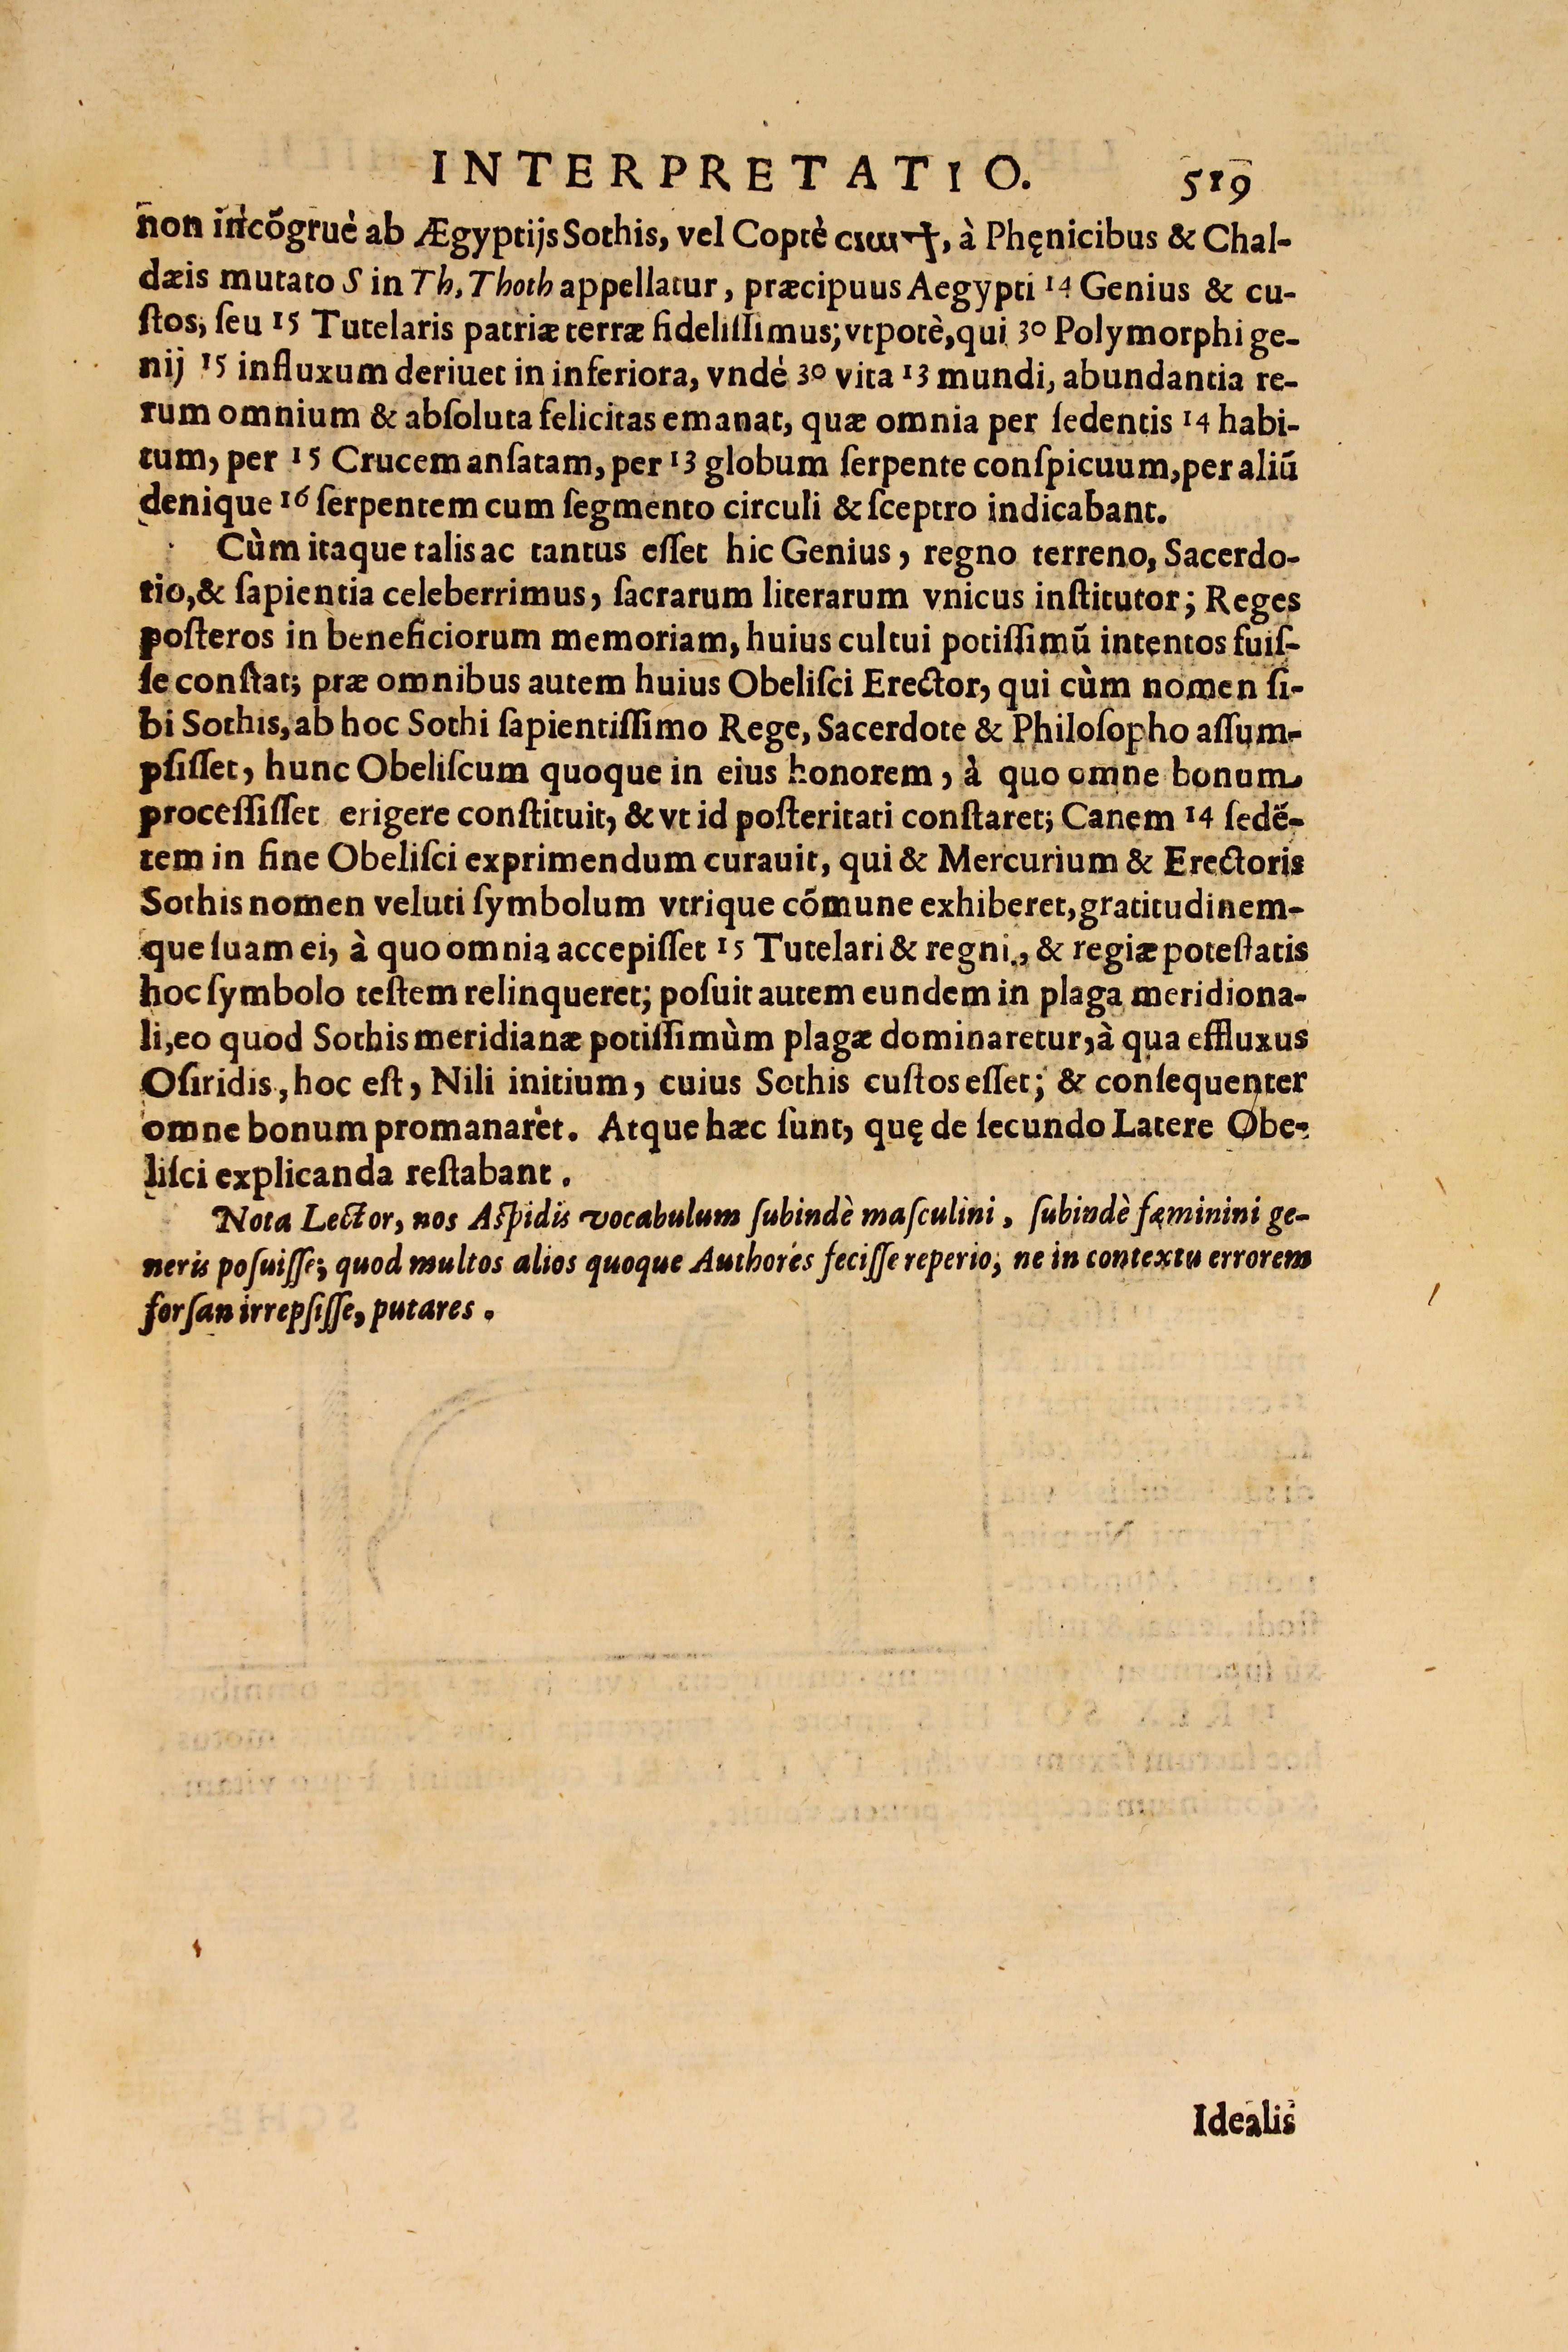 INTERPRETATIO. 519
non incõgruè ab Ægyptijs Sothis, vel Coptè ⲥⲓⲱⲧϯ, à Phęnicibus & Chal-
dæis mutato S in Th, Thoth appellatur, præcipuus Aegypti 14 Genius & cu-
ſtos, ſeu 15 Tutelaris patriæ terræ fideliſſimus; vtpotè, qui 30 Polymorphi ge-
nij 15 influxum deriuet in inferiora, vndè 30 vita 13 mundi, abundantia re-
rum omnium & abſoluta felicitas emanat, quæ omnia per ſedentis 14 habi-
tum, per 15 Crucem anſatam, per 13 globum ſerpente conſpicuum, per aliũ
denique 16 ſerpentem cum ſegmento circuli & ſceptro indicabant.
Cùm itaque talis ac tantus eſſet hic Genius, regno terreno, Sacerdo-
tio, & ſapientia celeberrimus, ſacrarum literarum vnicus inſtitutor; Reges
poſteros in beneficiorum memoriam, huius cultui potiſſimũ intentos fuiſ-
ſe conſtat; præ omnibus autem huius Obeliſci Erector, qui cùm nomen ſi-
bi Sothis, ab hoc Sothi ſapientiſſimo Rege, Sacerdote & Philoſopho aſſum-
pſiſſet, hunc Obeliſcum quoque in eius honorem, à quo omne bonum
proceſſiſſet erigere conſtituit, & vt id poſteritati conſtaret; Canem 14 ſedẽ-
tem in fine Obeliſci exprimendum curauit, qui & Mercurium & Erectoris
Sothis nomen veluti ſymbolum vtrique cõmune exhiberet, gratitudinem-
que ſuam ei, à quo omnia accepiſſet 15 Tutelari & regni, & regiæ poteſtatis
hoc ſymbolo teſtem relinqueret; poſuit autem eundem in plaga meridiona-
li, eo quod Sothis meridianæ potiſſimùm plagæ dominaretur, à qua effluxus
Oſiridis, hoc eſt, Nili initium, cuius Sothis cuſtos eſſet; & conſequenter
omne bonum promanaret. Atque hæc ſunt, quę de ſecundo Latere Obe-
liſci explicanda reſtabant.
Nota Lector, nos Aſpidis vocabulum ſubindè maſculini, ſubindè fæminini ge-
neris poſuiſſe; quod multos alios quoque Authores feciſſe reperio; ne in contextu errorem
forſan irrepſiſſe, putares.
Idealis